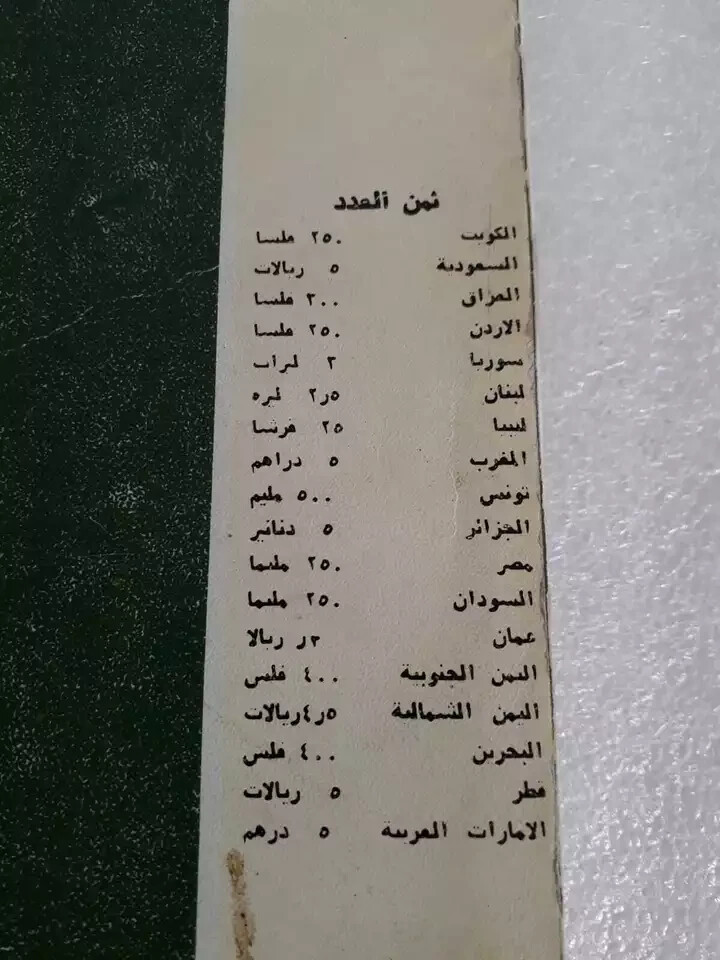 ثمن العدد
الكويت ٢٥٠ فلسا
السعودية ٥ ريالات
العراق ٣٠٠ فلسا
الاردن ٢٥٠ فلسا
سوريا ٣ ليرات
لبنان ٥ر٢ ليره
ليبيا ٢٥ قرشا
المغرب ٥ دراهم
تونس ٥٠٠ مليم
الجزائر ٥ دنانير
مصر ٢٥٠ مليما
السودان ٢٥٠ مليما
عمان ر ريالا
اليمن الجنوبية ٤٠٠ فلس
اليمن الشمالية ٥ر٤ ريالات
البحرين ٤٠٠ فلس
قطر ٥ ريالات
الامارات العربية ٥ درهم